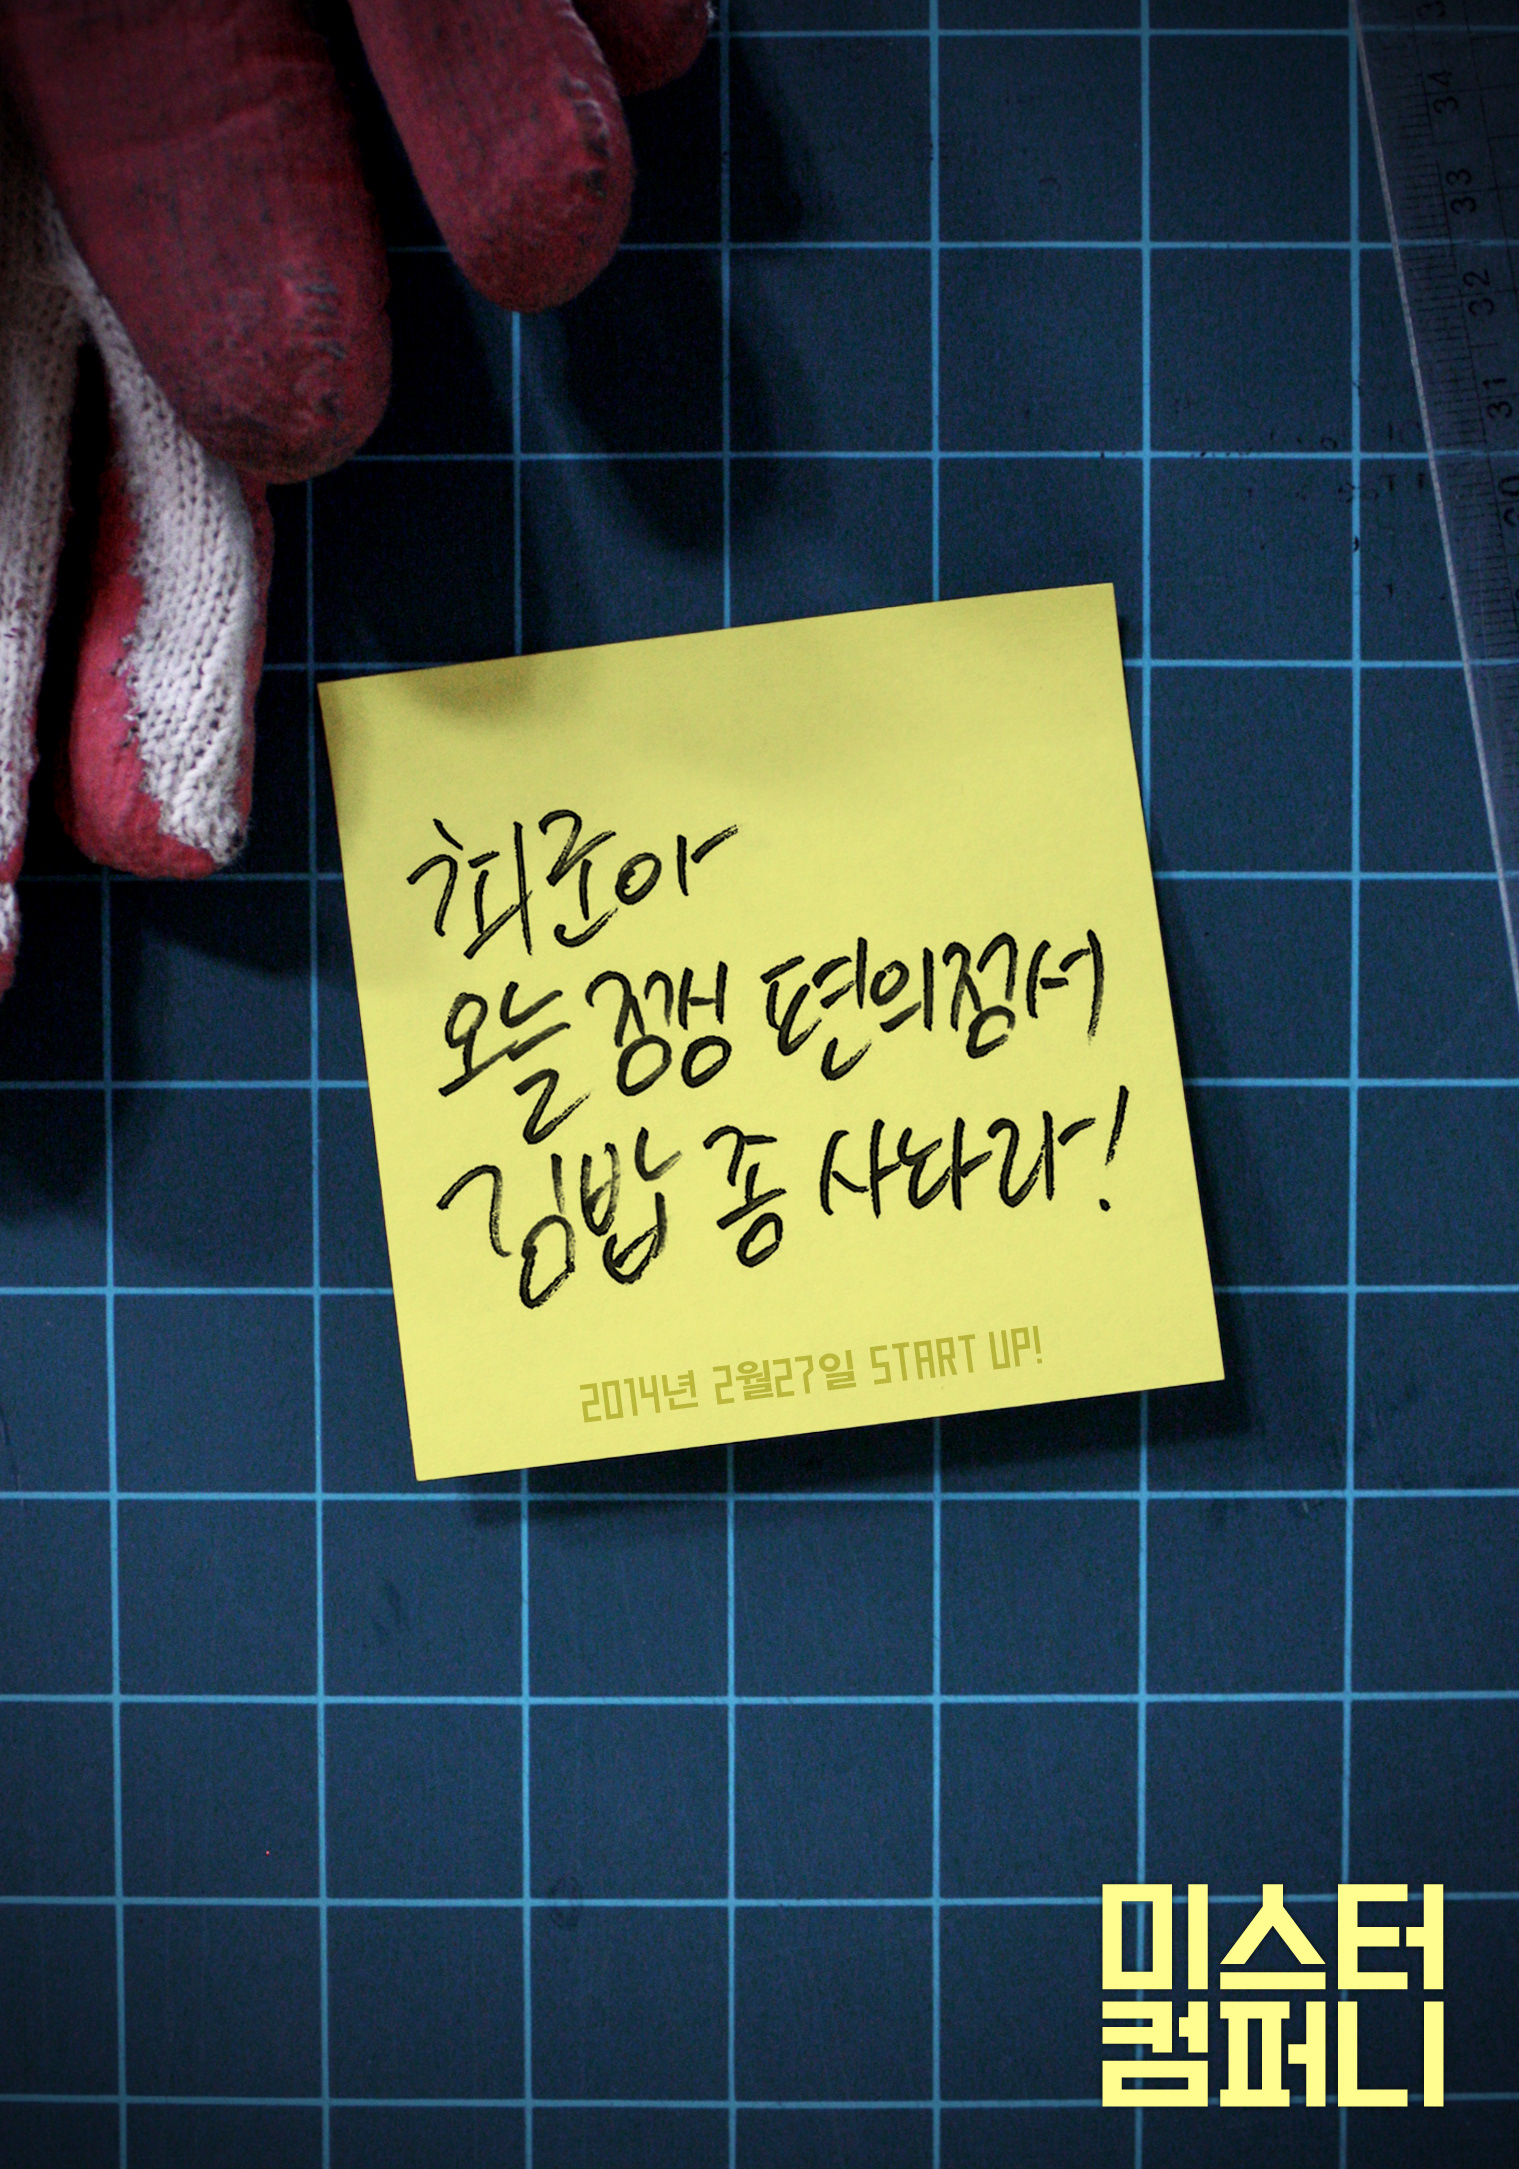 34
33
32
31
최준아
오늘 편의점서
김밥 좀 사놔라!
2014년 2월27일 START UP!
미스터
컴퍼니